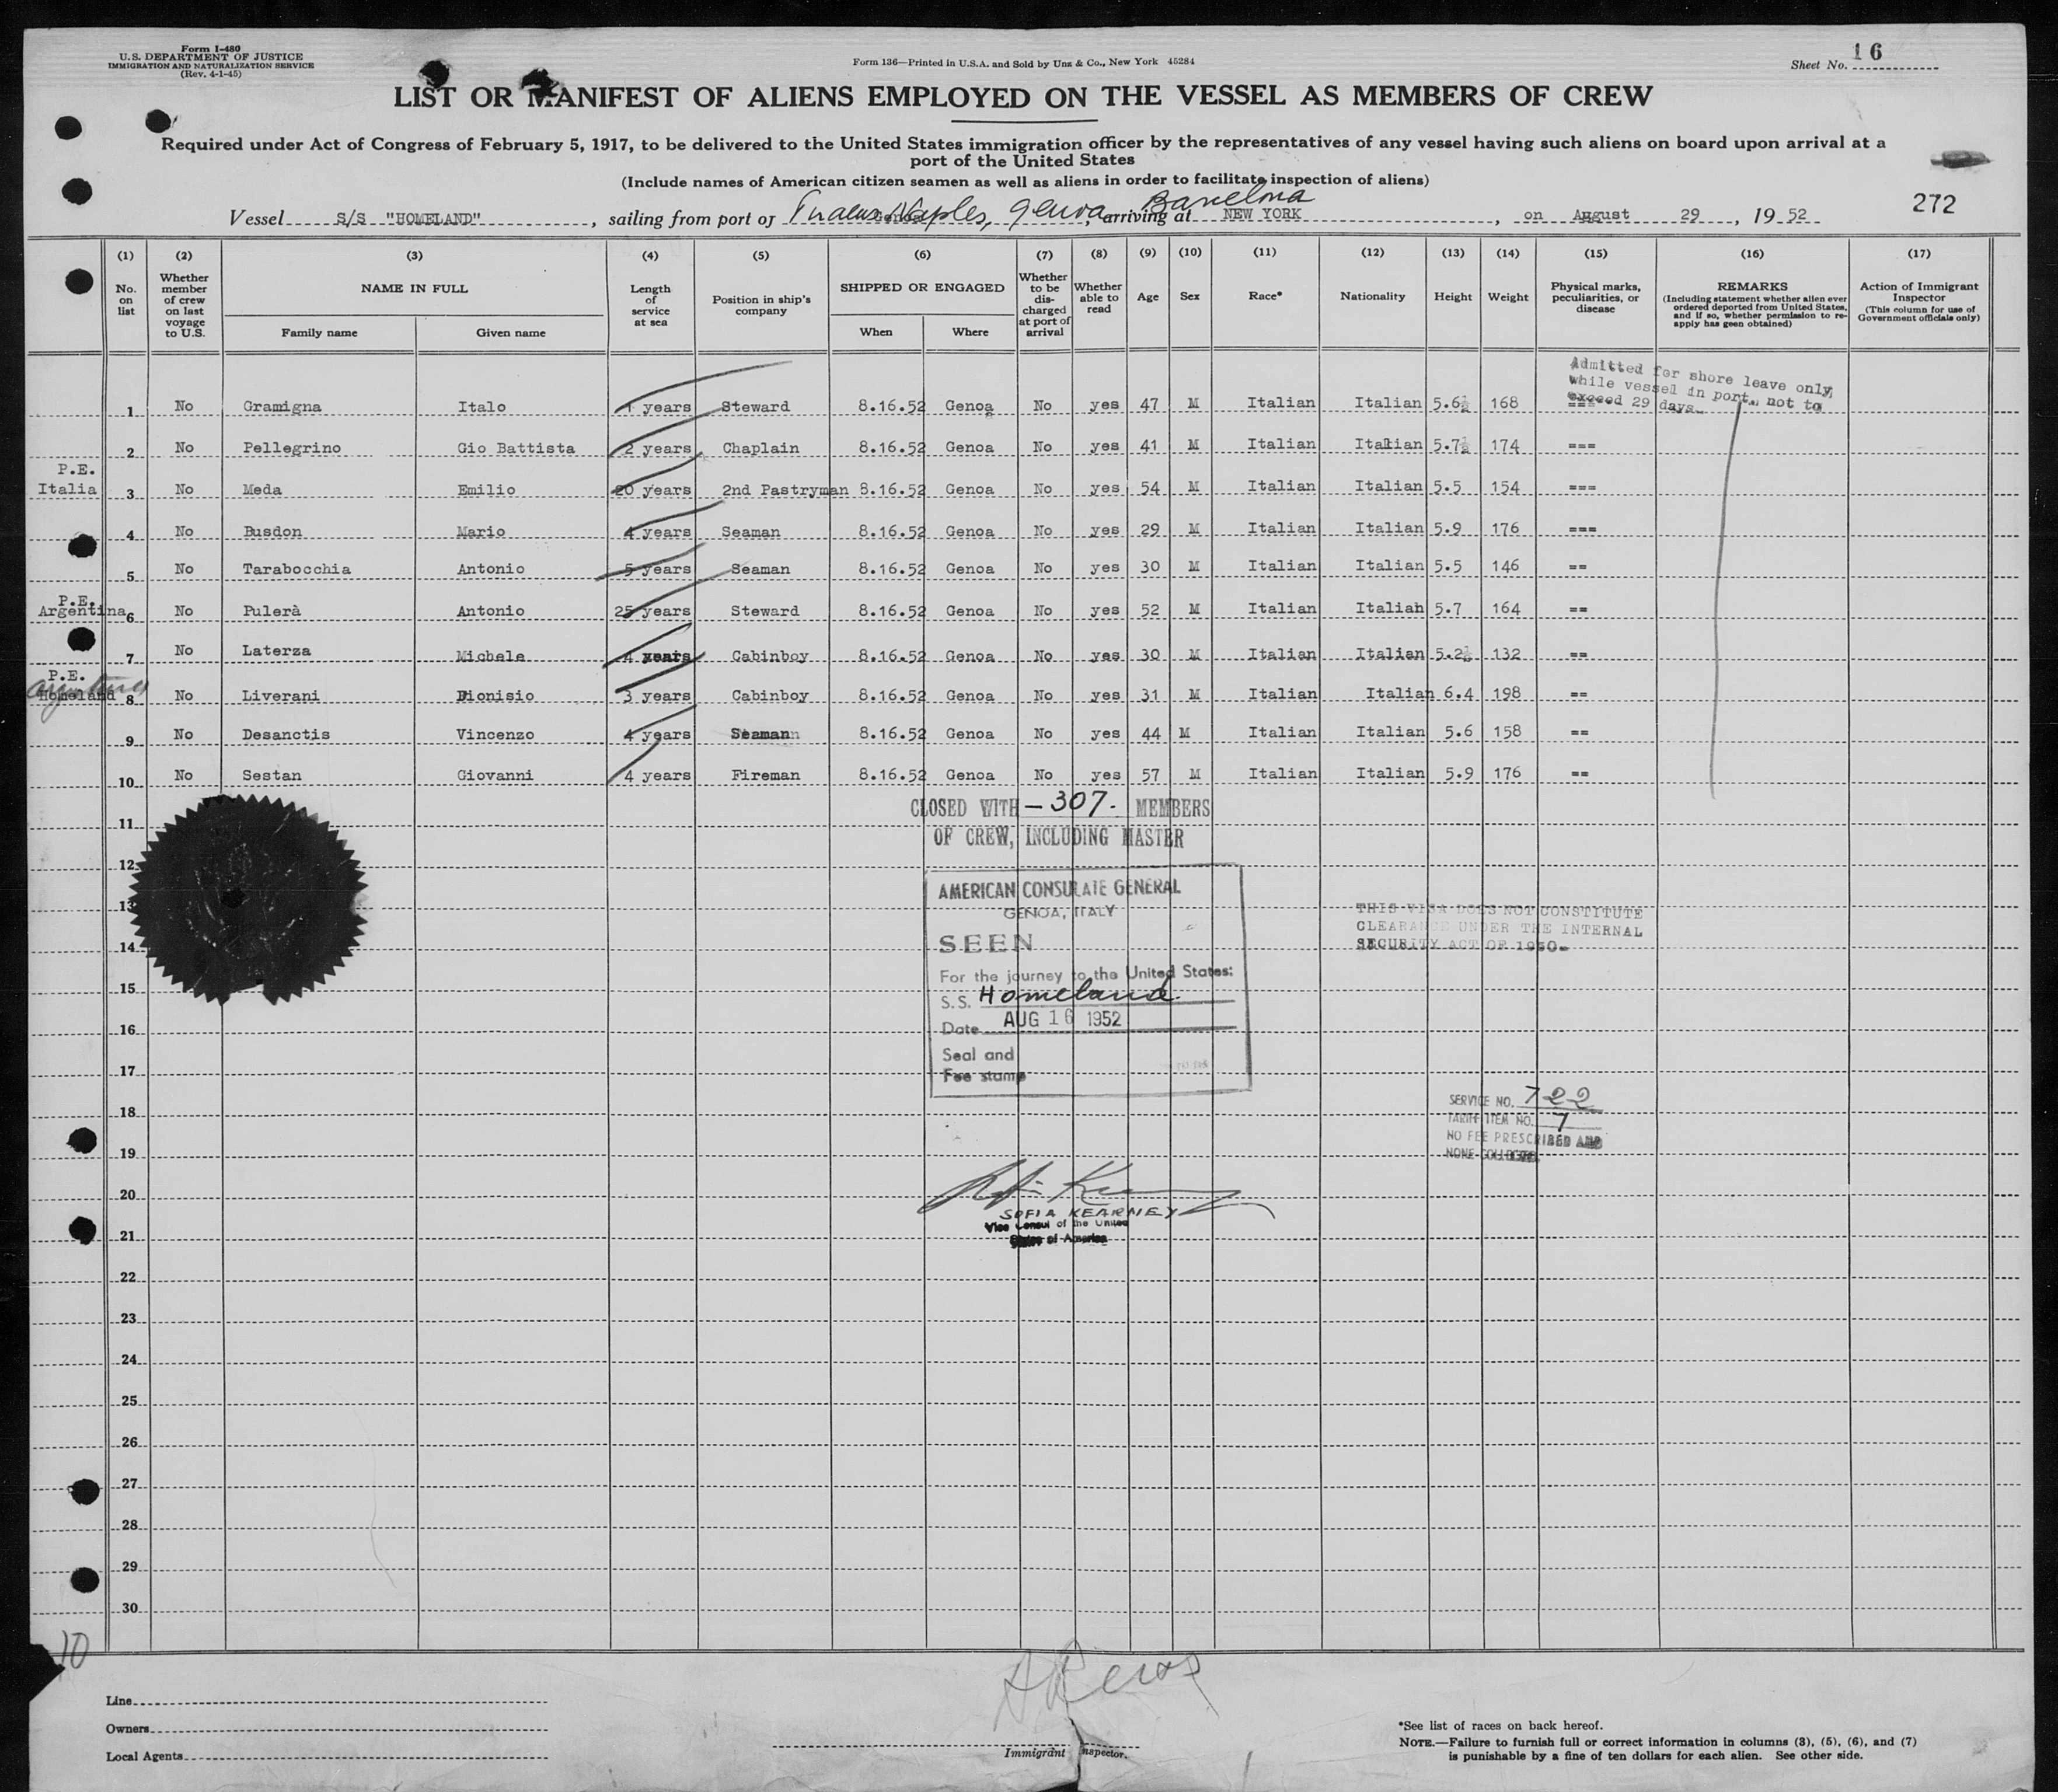 Form I-480
U.S. DEPARTMENT OF JUSTICE
IMMIGRATION AND NATURALIZATION SERVICE
(Rev. 4-1-45)
Form 136—Printed in U.S.A. and Sold by Unz & Co., New York 45284
Sheet No. 16
LIST OR MANIFEST OF ALIENS EMPLOYED ON THE VESSEL AS MEMBERS OF CREW
Required under Act of Congress of February 5, 1917, to be delivered to the United States immigration officer by the representatives of any vessel having such aliens on board upon arrival at a
port of the United States
(Include names of American citizen seamen as well as aliens in order to facilitate inspection of aliens)
272
Vessel S/S "HOMELAND", sailing from port of Genoa Naples, Genoa, Barcelona arriving at NEW YORK, on August 29, 1952
(1) (2) (3) (4) (5) (6) (7) (8) (9) (10) (11) (12) (13) (14) (15) (16) (17)
No. on list
Whether member of crew on last voyage to U.S.
NAME IN FULL
Family name
Given name
Length of service at sea
Position in ship's company
SHIPPED OR ENGAGED
When
Where
Whether to be discharged at port of arrival
Whether able to read
Age
Sex
Race*
Nationality
Height
Weight
Physical marks, peculiarities, or disease
REMARKS
(Including statement whether alien ever ordered deported from United States, and if so, whether permission to re-apply has geen obtained)
Action of Immigrant Inspector
(This column for use of Government officials only)
Admitted for shore leave only
while vessel in port, not to
exceed 29 days
1 No Gramigna Italo 1 years Steward 8.16.52 Genoa No yes 47 M Italian Italian 5.6½ 168 ===
2 No Pellegrino Gio Battista 2 years Chaplain 8.16.52 Genoa No yes 41 M Italian Italian 5.7½ 174 ===
P.E.
Italia 3 No Meda Emilio 20 years 2nd Pastryman 8.16.52 Genoa No yes 54 M Italian Italian 5.5 154 ===
4 No Busdon Mario 4 years Seaman 8.16.52 Genoa No yes 29 M Italian Italian 5.9 176 ===
5 No Tarabocchia Antonio 5 years Seaman 8.16.52 Genoa No yes 30 M Italian Italian 5.5 146 ==
P.E.
Argentina 6 No Pulerà Antonio 25 years Steward 8.16.52 Genoa No yes 52 M Italian Italian 5.7 164 ==
7 No Laterza Michele 4 years Cabinboy 8.16.52 Genoa No yes 30 M Italian Italian 5.2½ 132 ==
P.E.
Argentina
Homeland 8 No Liverani Dionisio 3 years Cabinboy 8.16.52 Genoa No yes 31 M Italian Italian 6.4 198 ==
9 No Desanctis Vincenzo 4 years Seaman 8.16.52 Genoa No yes 44 M Italian Italian 5.6 158 ==
10 No Sestan Giovanni 4 years Fireman 8.16.52 Genoa No yes 57 M Italian Italian 5.9 176 ==
CLOSED WITH —307. MEMBERS
OF CREW, INCLUDING MASTER
11
12
13
14
15
16
17
18
19
20
21
22
23
24
25
26
27
28
29
30
AMERICAN CONSULATE GENERAL
GENOA, ITALY
SEEN
For the journey to the United States:
S.S. Homeland
Date AUG 16 1952
Seal and
Fee stamp
THIS VISA DOES NOT CONSTITUTE
CLEARANCE UNDER THE INTERNAL
SECURITY ACT OF 1950-
SERVICE NO. 722
TARIFF ITEM NO. 7
NO FEE PRESCRIBED AND
NONE COLLECTED
SOFIA KEARNEY
Vice Consul of the United
States of America
10
Line
Owners
Local Agents
Immigrant Inspector.
*See list of races on back hereof.
NOTE.—Failure to furnish full or correct information in columns (3), (5), (6), and (7)
is punishable by a fine of ten dollars for each alien. See other side.